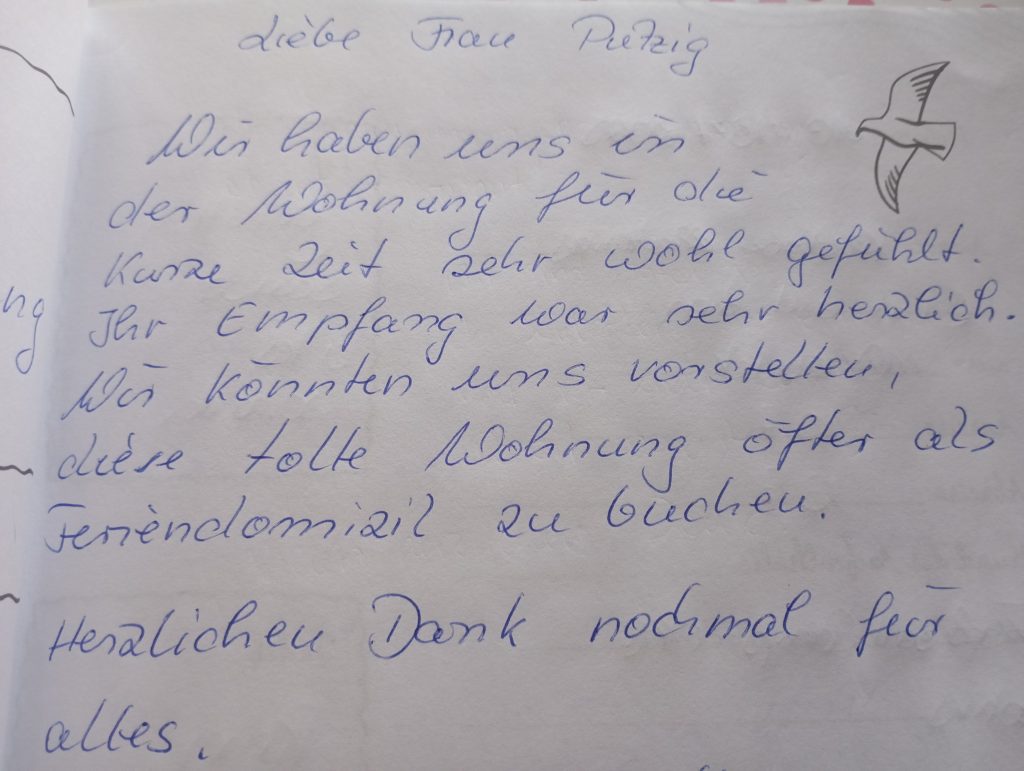 Liebe Frau Putzig
Wir haben uns in
der Wohnung für die
kurze Zeit sehr wohl gefühlt.
Ihr Empfang war sehr herzlich.
Wir könnten uns vorstellen,
diese tolle Wohnung öfter als
Feriendomizil zu buchen.
Herzlichen Dank nochmal für
alles.
ng